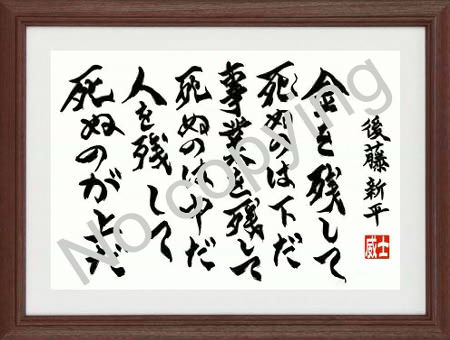 後藤新平
士威
金を残して
死ぬのは下だ
事業を残して
死ぬのは中だ
人を残して
死ぬのが上だ
No copying